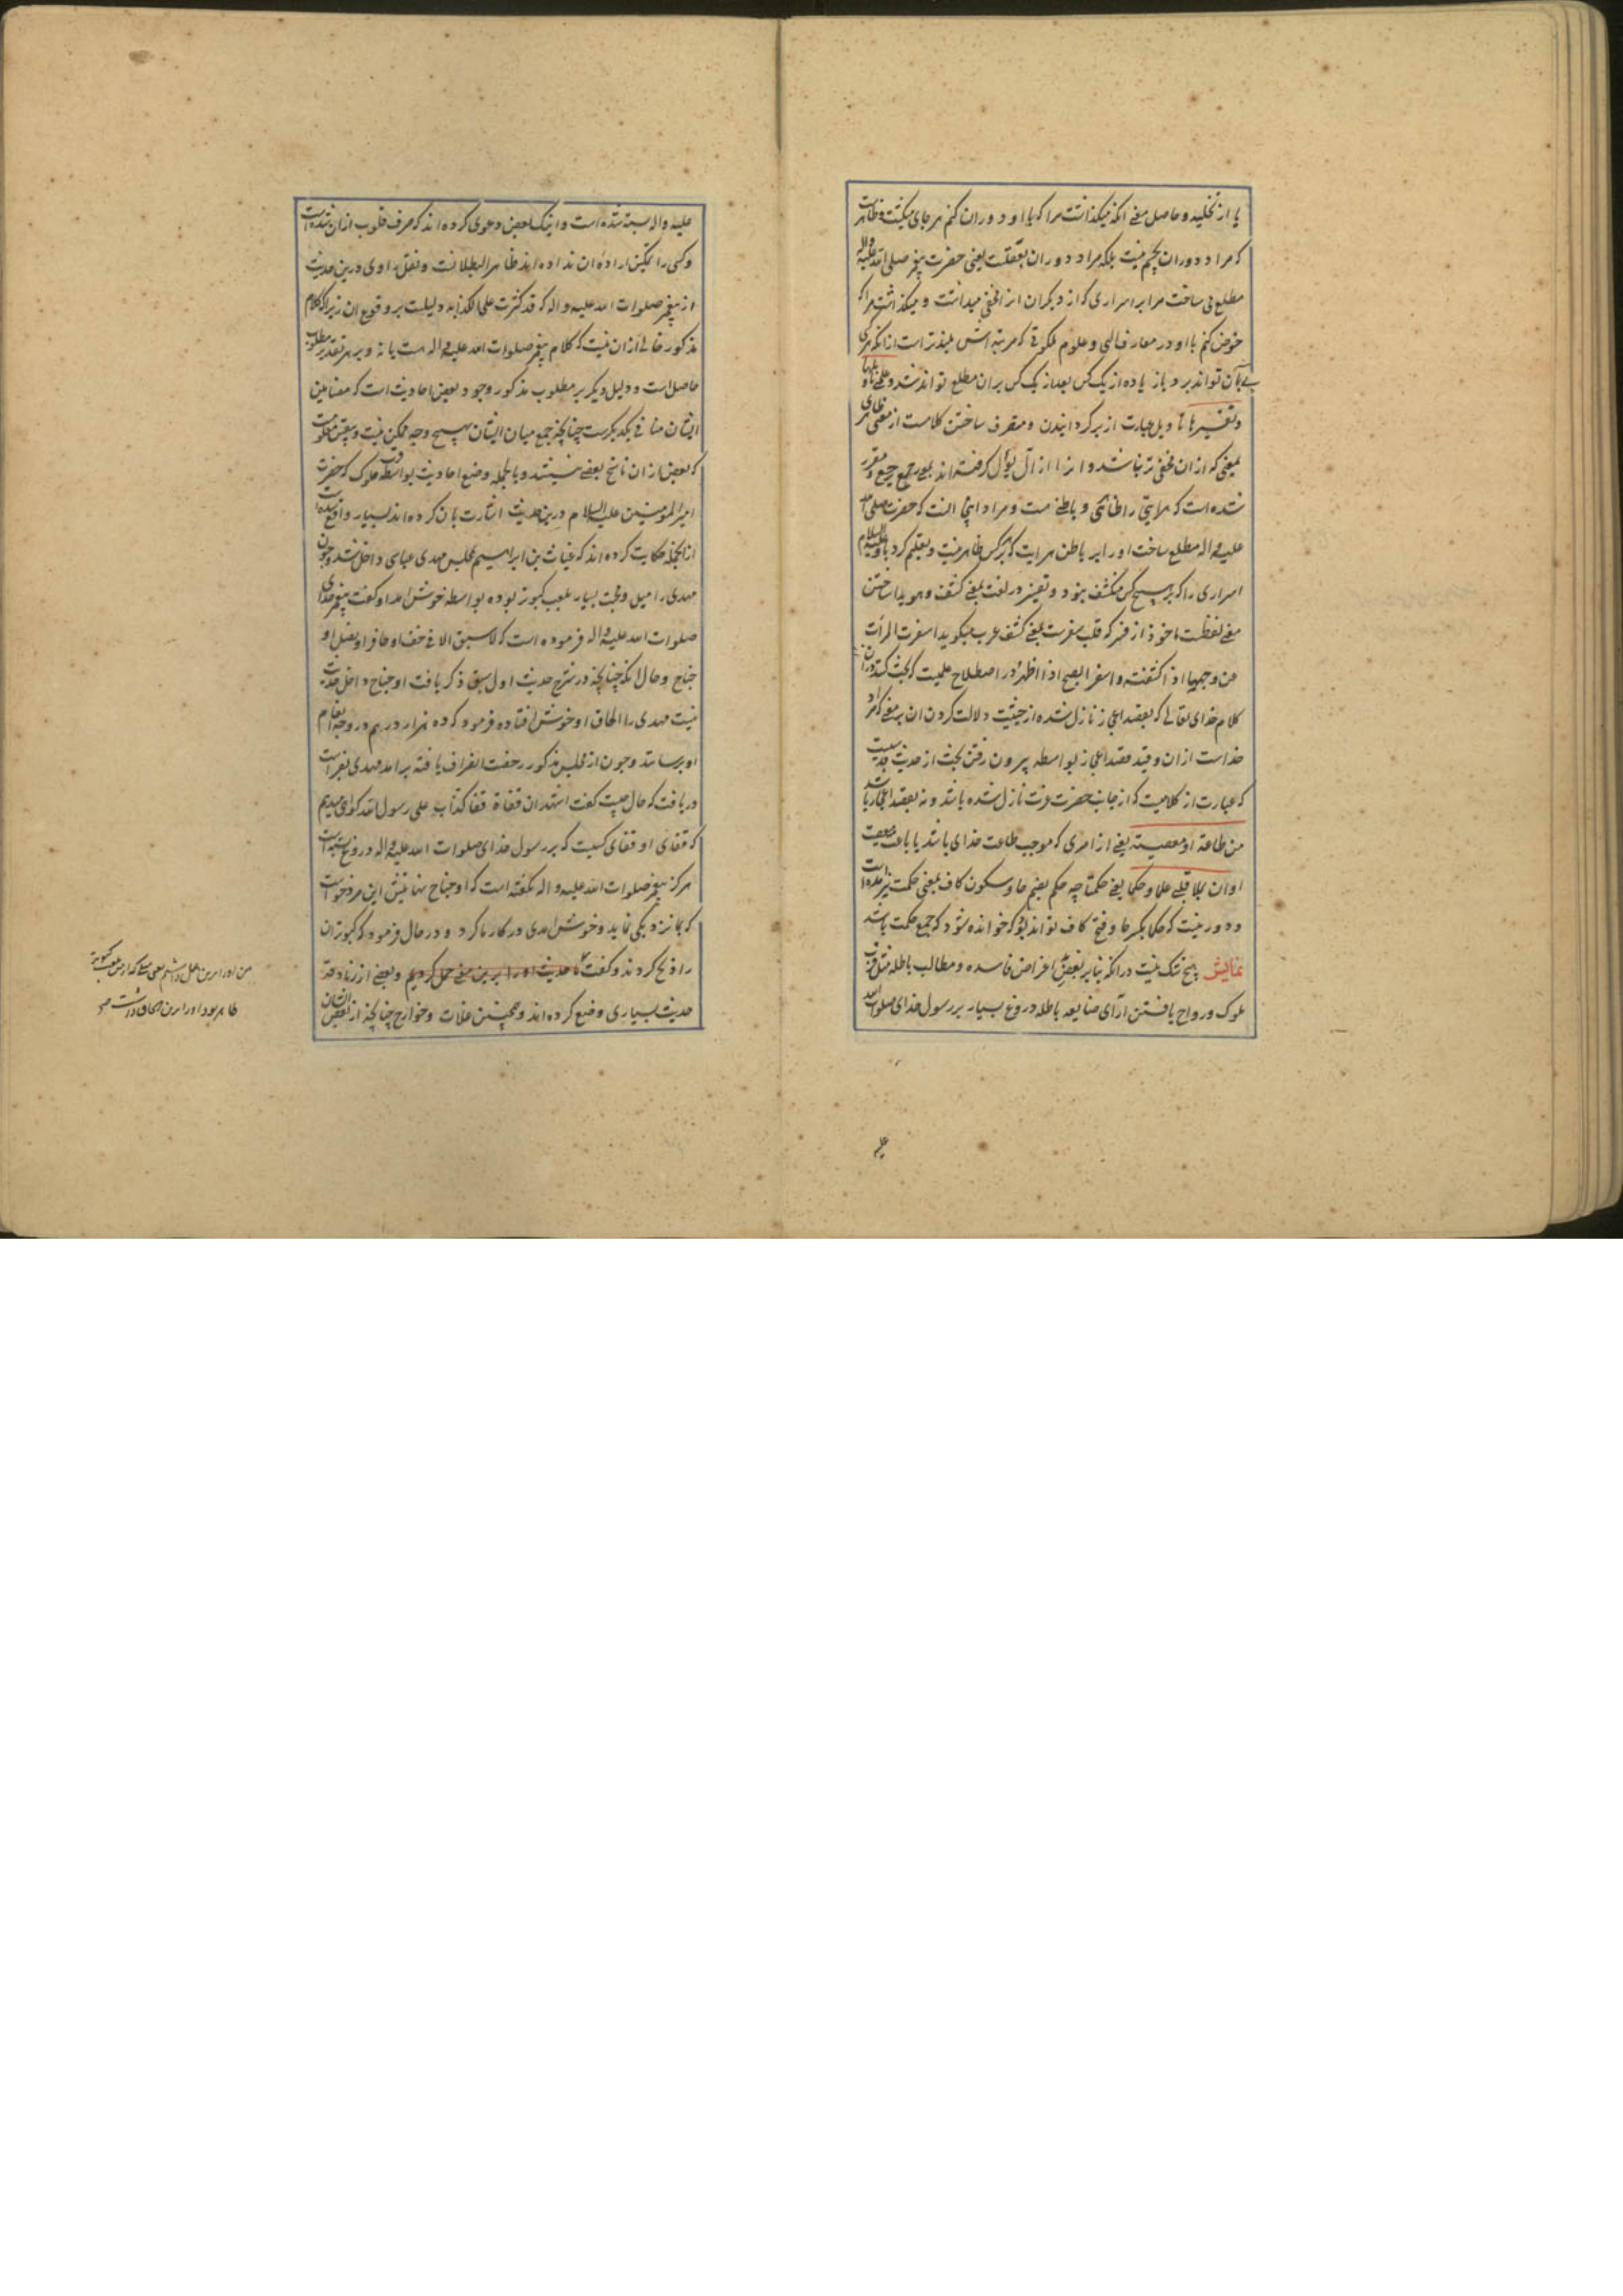 یا از تخلیه و حاصل معنی آنکه میگذاشت مرا که با او دوران کنم هر جای میگشت و ظاهر است
که مراد دوران بجسم نیست بلکه مراد دوران بعقلست یعنی حضرت پیغمبر صلی الله علیه و اله
مطلع می ساخت مرا بر اسراری که از دیگران انرا مخفی میداشت و میگذاشت مرا که
خوض کنم با او در معارف الهی و علوم ملکوتی که مرتبه اش بلندتر است از انکه هر کس
پی بآن تواند برد یا زیاده از یک کس بعد از یک کس بران مطلع تواند شد و علمنی تاویلها
و تفسیرها تاویل عبارت از برگردانیدن و منصرف ساختن کلامست از معنی ظاهری
بمعنی که ازان مخفی تر باشد و انرا از آل یؤل گرفته اند بمعنی رجع یرجع و مقرر
شده است که هر آیتی را ظاهری و باطنی هست و مراد اینجا انست که حضرت صلی الله
علیه و اله مطلع ساخت او را بر باطن هر ایت که بر هر کس ظاهر نیست و تعلیم کرد باو علیه السلام
اسراری را که بر هیچ کس منکشف نبود و تفسیر در لغت بمعنی کشف و هویدا ساختن
معنی لفظست ماخوذ از فسر که قلب سفرست بمعنی کشف عرب میگوید اسفرت المرأت
عن وجهها اذا کشفته و اسفر الصبح اذا اظهر و در اصطلاح علمیست که بحث کنند دران از
کلام خدای تعالی که بقصد اعجاز نازل شده از حیثیت دلالت کردن ان بر معنی که مراد
خداست ازان و قید قصد اعجاز بواسطه بیرون رفتن بحث از حدیث قدسیست
که عبارت از کلامیست که از جانب حضرت عزت نازل شده باشد و نه بقصد اعجاز باشد
من طاعة او معصیته یعنی از امری که موجب طاعت خدای باشد یا باعث معصیت
او ان یملا قلبی علما و حکما یعنی حکمتا چه حکم بضم حا و سکون کاف بمعنی حکمت نیز آمده است
و دور نیست که حکما بکسر حا و فتح کاف تواند بود که خوانده شود که جمع حکمت باشد
نمایش هیچ شک نیست در انکه بنا بر بعضی اغراض فاسده و مطالب باطله مثل قرب
ملوک و رواج یافتن آرای ضایعه باطله دروغ بسیار بر رسول خدای صلوات الله
علیه
علیه و اله بسته شده است و اینک بعضی دعوی کرده اند که صرف قلوب ازان شده است
و کسی را تمکین اراده ان نداده اند ظاهر البطلانست و نقل راوی درین حدیث
از پیغمبر صلوات الله علیه و اله که قد کثرت علی الکذابه دلیلست بر وقوع ان زیرا که کلام
مذکور خالی ازان نیست که کلام پیغمبر صلوات الله علیه و اله هست یا نه و بر هر تقدیر مطلوب
حاصل است و دلیل دیگر بر مطلوب مذکور وجود بعضی احادیث است که مضامین
ایشان منافی یکدیگرست چنانچه جمع میان ایشان بهیچ وجه ممکن نیست و یقین معلومست
که بعضی ازان ناسخ بعضی نیستند و بالجمله وضع احادیث بواسطه قرب ملوک که حضرت
امیر المومنین علیه السلام درین حدیث اشارت بان کرده اند بسیار واقع شده است
ازانجمله حکایت کرده اند که غیاث بن ابراهیم بمجلس مهدی عباسی داخل شد و چون
مهدی را میل و محبت بسیار بلعب کبوتر بوده بواسطه خوش امد او گفت پیغمبر خدای
صلوات الله علیه و اله فرموده است که لا سبق الا فی خف او حافر او نصل او
جناح و حال انکه چنانچه در شرح حدیث اول سبق ذکر یافت او جناح داخل حدیث
نیست مهدی را الحاق او خوش افتاده فرمود که ده هزار درهم در وجه انعام
او برسانند و چون از مجلس مذکور رخصت انصراف یافته برامد مهدی بفراست
دریافت که حال چیست گفت اشهد ان قفاه قفا کذاب علی رسول الله گواهی میدهم
که قفای او قفای کسیست که بر رسول خدای صلوات الله علیه و اله دروغ بسته است
هرگز پیغمبر صلوات الله علیه و اله نگفته است که او جناح نهایتش این مرد خواست
که بما نزدیکی نماید و خوش امدی در کار ما کرد و در حال فرمود که کبوتران
را ذبح کردند و گفت ما حدیث او را برین معنی حمل کردیم و بعضی از زنادقه
حدیث بسیاری وضع کرده اند و همچنین غلات و خوارج چنانچه از بعضی ایشان
من او را برین داشتم یعنی میلی که از من بلعب کبوتر
ظاهر بود او را برین الحاق داشت